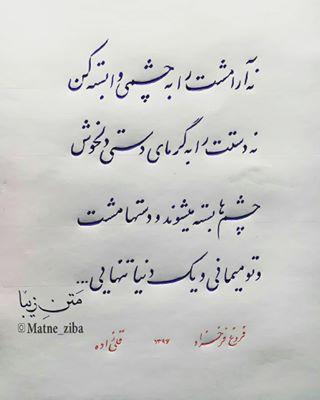 نه آرامشت را به چشمی وابسته کن
نه دستت را به گرمای دستی دلخوش
چشم‌ها بسته میشوند و دستها مشت
و تو میمانی و یک دنیا تنهایی...
متن زیبا
©Matne_ziba
فروغ فرخزاد ۱۳۹۶ قلی‌زاده